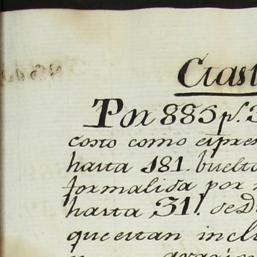 Ctas
Por 885 p.s
costo como expres
hasta 181. buelto
formalida por
hasta 31,, de D
que estan inclu